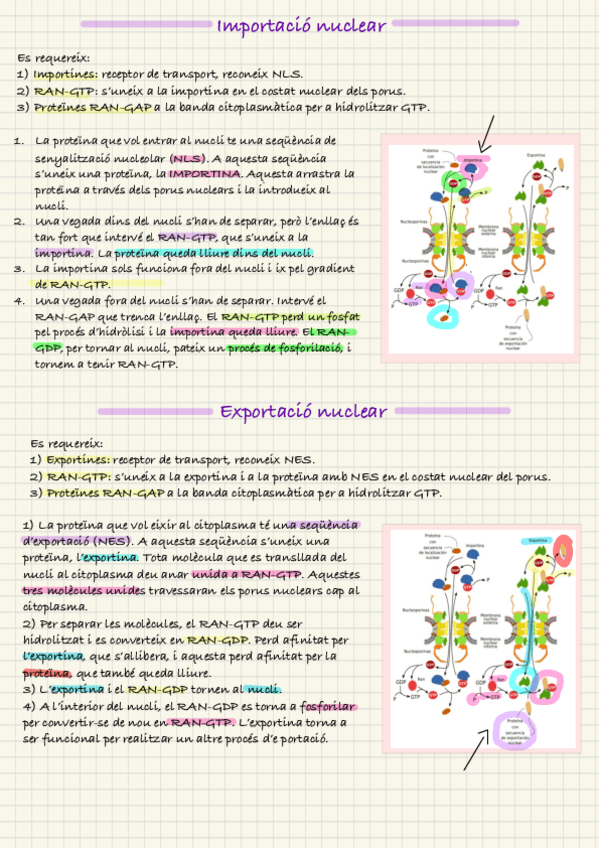 Importació nuclear
Es requereix:
1) Importines: receptor de transport, reconeix NLS.
2) RAN-GTP: s'uneix a la importina en el costat nuclear dels porus.
3) Proteïnes RAN-GAP a la banda citoplasmàtica per a hidrolitzar GTP.
1. La proteïna que vol entrar al nucli te una seqüència de
senyalització nucleolar (NLS). A aquesta seqüència
s'uneix una proteïna, la IMPORTINA. Aquesta arrastra la
proteïna a través dels porus nuclears i la introdueix al
nucli.
2. Una vegada dins del nucli s'han de separar, però l'enllaç és
tan fort que intervé el RAN-GTP, que s'uneix a la
importina. La proteïna queda lliure dins del nucli.
3. La importina sols funciona fora del nucli i ix pel gradient
de RAN-GTP.
4. Una vegada fora del nucli s'han de separar. Intervé el
RAN-GAP que trenca l'enllaç. El RAN-GTP perd un fosfat
pel procés d'hidròlisi i la importina queda lliure. El RAN-
GDP, per tornar al nucli, pateix un procés de fosforilació, i
tornem a tenir RAN-GTP.
Proteína
con
secuencia
de localización
nuclear
Importina
Exportina
P
P
Nucleoporinas
Membrana
nuclear
externa
Nucleoporinas
Membrana
nuclear
interna
GDP
Ran
GTP
P
GDP
Ran
GTP
P
Proteína
con
secuencia
de exportación
nuclear
Exportació nuclear
Es requereix:
1) Exportines: receptor de transport, reconeix NES.
2) RAN-GTP: s'uneix a la exportina i a la proteïna amb NES en el costat nuclear del porus.
3) Proteïnes RAN-GAP a la banda citoplasmàtica per a hidrolitzar GTP.
1) La proteïna que vol eixir al citoplasma té una seqüència
d'exportació (NES). A aquesta seqüència s'uneix una
proteïna, l'exportina. Tota molècula que es transllada del
nucli al citoplasma deu anar unida a RAN-GTP. Aquestes
tres molècules unides travessaran els porus nuclears cap al
citoplasma.
2) Per separar les molècules, el RAN-GTP deu ser
hidrolitzat i es converteix en RAN-GDP. Perd afinitat per
l'exportina, que s'allibera, i aquesta perd afinitat per la
proteïna, que també queda lliure.
3) L'exportina i el RAN-GDP tornen al nucli.
4) A l'interior del nucli, el RAN-GDP es torna a fosforilar
per convertir-se de nou en RAN-GTP. L'exportina torna a
ser funcional per realitzar un altre procés d'e portació.
Proteína
con
secuencia
de localización
nuclear
Importina
Exportina
P
P
Nucleoporinas
Membrana
nuclear
externa
Nucleoporinas
Membrana
nuclear
interna
GDP
Ran
GTP
P
GDP
Ran
GTP
P
Proteína
con
secuencia
de exportación
nuclear